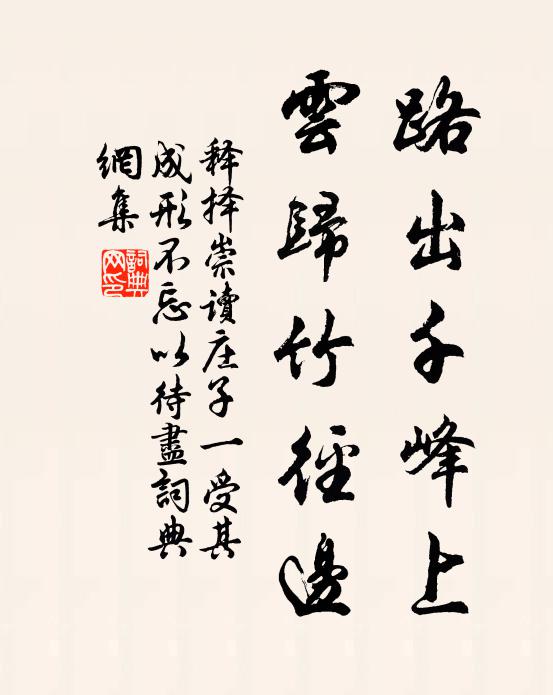 路出千峰上
雲歸竹徑邊
释择崇讀庄子一受其
成形不忘以待盡詞典
網集
詞典網印